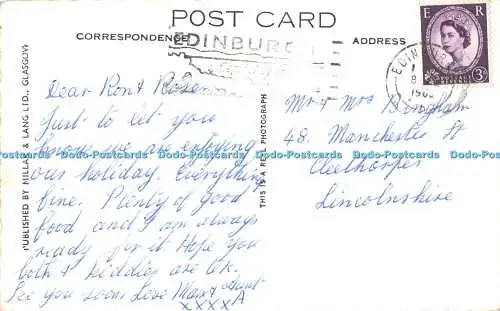 POST CARD
CORRESPONDENCE
ADDRESS
EDINBURGH
E R
POSTAGE REVENUE
3D
EDINBURGH
8
196
PUBLISHED BY MILLAR & LANG LTD., GLASGOW
THIS IS A REAL PHOTOGRAPH
Dear Ron & Rose
Just to let you
know we are enjoying
our holiday. Everything
fine. Plenty of good
food and I am always
ready for it. Hope you
both & kiddies are ok.
See you soon. Love Mam & Aunt
A
xxxx
Mr & Mrs Bingham
48. Manchester St
Cleethorpes
Lincolnshire
Postcards Dodo-Postcards Dodo-Postcards Dodo-Postcards Dodo-Postcards Dodo-Postcards Dodo-Postcards